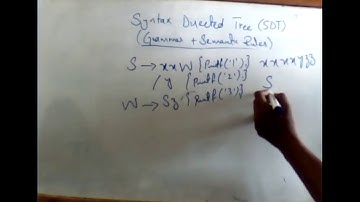 Syntax Directed Tree (SDT)
(Grammar + Semantic Rules)
S → xxW {Printf('1');} xxxxyzz
/ y {Printf('2');} S
W → Sz {Printf('3');}